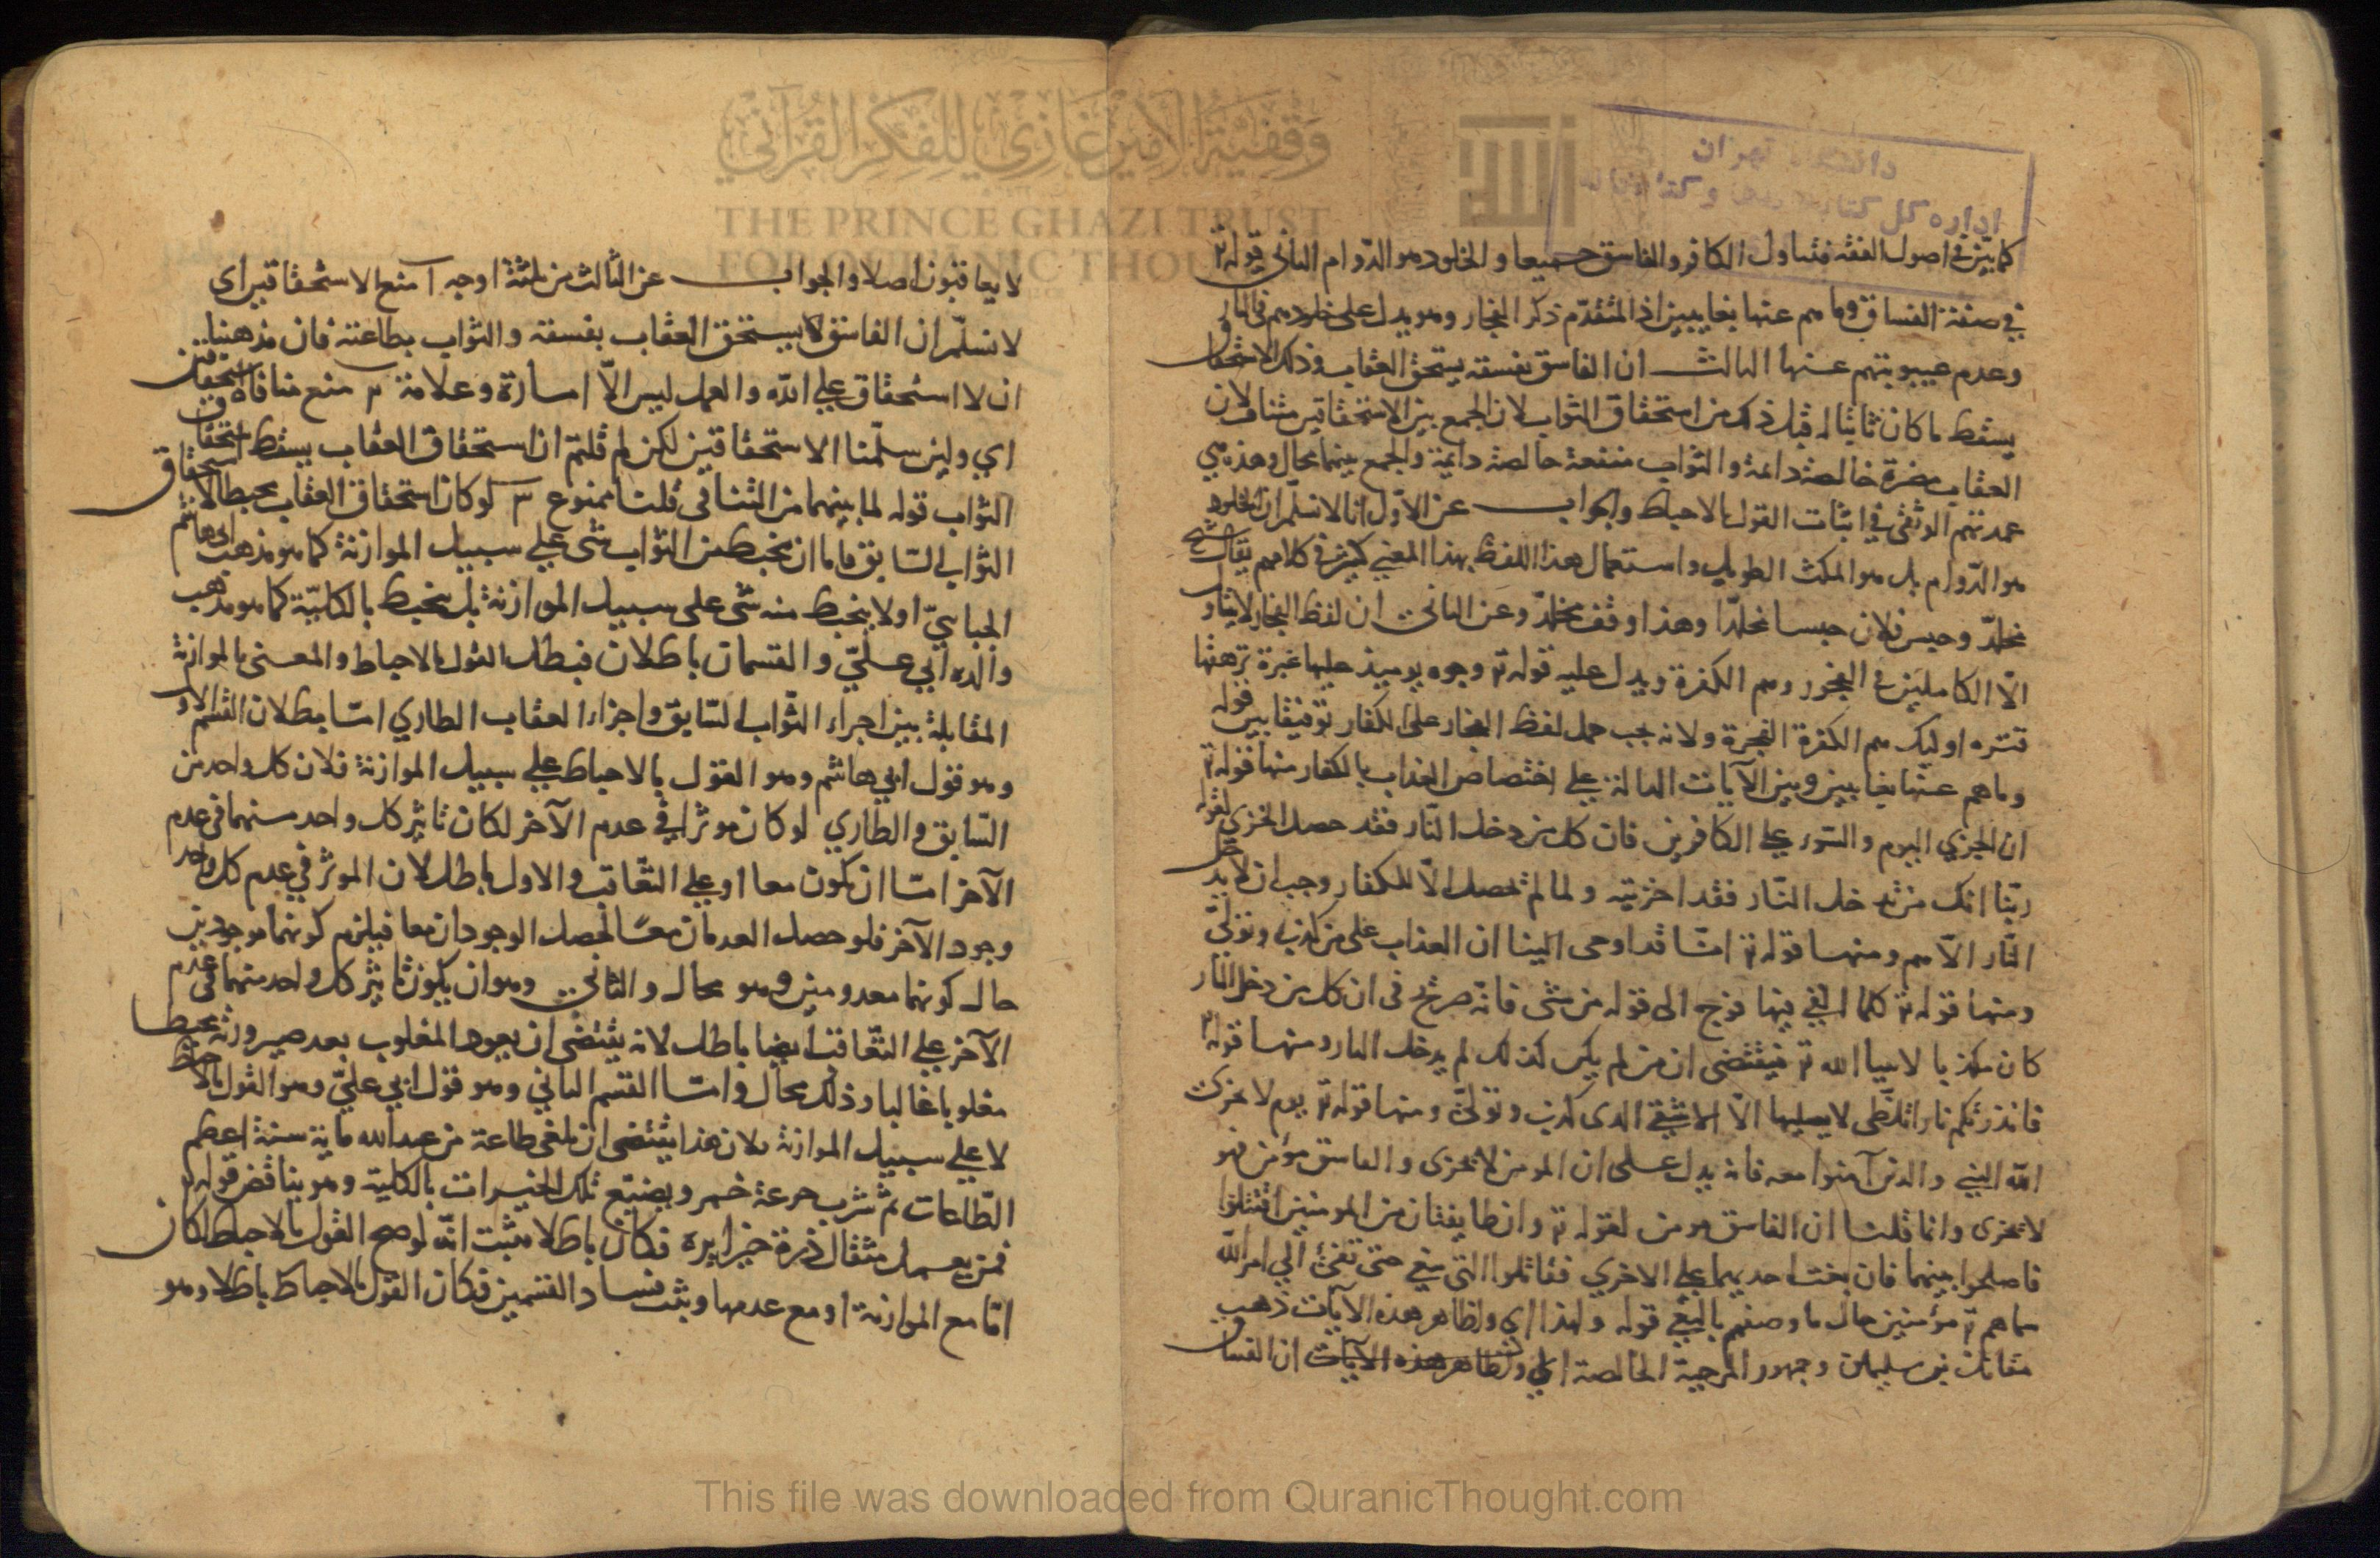 وقفية الأمير غازي للفكر القرآني
THE PRINCE GHAZI TRUST
FOR QUR'ANIC THOUGHT
دانشگاه تهران
اداره کل کتابخانه
كما بيّن في اصول الفقه فتناول الكافر والفاسق جميعا والخلود هو الدّوام الثاني قوله تع
في صفة الفساق وما هم عنها بغايبين اذ المتقدّم ذكر الفجار وهو يدل على خلودهم في النار
وعدم غيبوبتهم عنها الثالث ان الفاسق بفسقه يستحق العقاب وذلك الاستحقاق
يسقط ما كان ثابتا له قبل ذلك من استحقاق الثواب لان الجمع بين الاستحقاقين متناف لان
العقاب مضرة خالصة دائمة والثواب منفعة خالصة دايمة والجمع بينهما محال وهذه هي
عمدتهم الوثقى في اثبات القول بالاحباط والجواب عن الاوّل انا لا نسلّم ان الخلود
هو الدّوام بل هو المكث الطويل واستعمال هذا اللفظ بهذا المعنى كثير في كلامهم يقال
مخلدّ وحبس فلان حبسا مخلدّا وهذا وقف مخلدّ وعن الثاني ان لفظ الفجار لا يتناول
الّا الكاملين في الفجور وهم الكفرة ويدل عليه قوله تع وجوه يوميذ عليها غبرة ترهقها
قترة اوليك هم الكفرة الفجرة ولانه يجب حمل لفظ الفجار على الكفار توفيقا بين قوله
وما هم عنها بغايبين وبين الآيات الدالة على اختصاص العذاب بالكفار منها قوله تع
ان الخزي اليوم والسّوء على الكافرين فان كل من دخل النّار فقد حصل الخزي لقوله
ربّنا انك من تدخل النّار فقد اخزيته ولما لم تحصل الّا للكفار وجب ان لا يدخل
النّار الّا هم ومنها قوله تع انّا قد اوحى الينا ان العذاب على من كذب وتولى
ومنها قوله تع كلما القي فيها فوج الى قوله من شى فانّه صريح في ان كل من دخل النار
كان مكذبا لانبيا الله تع فيقتضى ان من لم يكن كذلك لم يدخل النار ومنها قوله تع
فانذرتكم نارا تلظّى لا يصليها الّا الاشقى الذى كذب وتولىّ ومنها قوله تع يوم لا يخزى
الله النبي والذين آمنوا معه فانه يدل على ان المومن لا يخزى والفاسق مؤمن فهو
لا يخزى وانما قلنا ان الفاسق مومن لقوله تع وان طايفتان من المومنين اقتتلوا
فاصلحوا بينهما فان بغت احديهما على الاخري فقاتلوا التي تبغي حتى تفئ الى امر الله
سماهم تع مؤمنين حال ما وصفهم بالبغي قوله ولهذا اي ولظاهر هذه الآيات ذهب
مقاتل بن سليمان وجمهور المرجية الخالصة اي ولظاهر هذه الآيات ان الفساق
لا يعاقبون اصلا والجواب عن الثالث من ثلثة اوجه آ منع الاستحقاقين اى
لا نسلّم ان الفاسق لا يستحق العقاب بفسقه والثواب بطاعته فان مذهبنا
ان لا استحقاق على الله والعمل ليس الّا امارة وعلامة منع منافاة الاستحقاقين
اي ولين سلّمنا الاستحقاقين لكن لم قلتم ان استحقاق العقاب يسقط استحقاق
الثواب قوله لما بينهما من التنافى قلنا ممنوع لو كان استحقاق العقاب محبطا لاستحقاق
الثواب السّابق فاما ان يحبط من الثواب شى على سبيل الموازنة كما هو مذهب ابى هاشم
الجبايىّ اولا يحبط منه شى على سبيل الموازنة بل يحبط بالكليّة كما هو مذهب
والده ابي عليّ والقسمان باطلان فبطل القول بالاحباط والمعنى بالموازنة
المقابلة بين اجزاء الثّواب السّابق واجزاء العقاب الطاري امّا بطلان القسم الاول
وهو قول ابي هاشم وهو القول بالاحباط على سبيل الموازنة فلان كل واحد من
السّابق والطاري لو كان موثرا في عدم الآخر لكان تاثير كل واحد منهما في عدم
الآخر امّا ان يكون معا او على التعّاقب والاول باطل لان الموثر في عدم كل واحد
وجود الآخر فلو حصل العدمان معًا لحصل الوجودان معا فيلزم كونهما موجودين
حال كونهما معدومين وهو محال والثاني وهو ان يكون تاثير كل واحد منهما في عدم
الآخر على التعّاقب ايضا باطل لانه يقتضى ان يعود المغلوب بعد صيرورته محبطا
مغلوبا غالبا وذلك محال وامّا القسم الثاني وهو قول ابي عليّ وهو القول بالاحباط
لا على سبيل الموازنة فلان هذا يقتضى ان من عبد الله ماية سنة اعظم
الطّاعات ثم شرب جرعة خمر ويضيّع تلك الخيرات بالكلية وهو يناقض قوله تع
فمن يعمل مثقال ذرة خيرا يره فكان باطلا فثبت انّه لو صح القول بالاحباط لكان
امّا مع الموازنة او مع عدمها وثبت فساد القسمين فكان القول بالاحباط باطلا وهو
This file was downloaded from QuranicThought.com